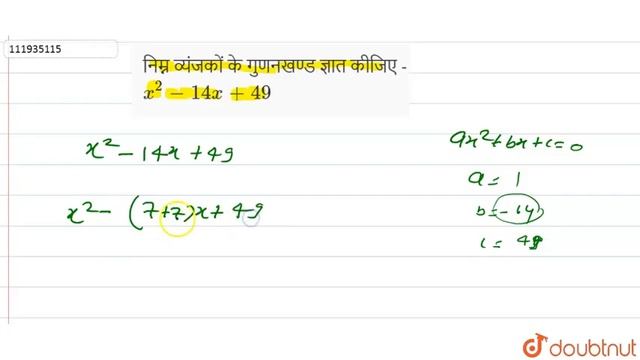 111935115
निम्न व्यंजकों के गुणनखण्ड ज्ञात कीजिए -
x² – 14x + 49
x² – 14x + 49
ax²+bx+c=0
a = 1
x² – (7+7)x + 49
b = -14
c = 49
doubtnut